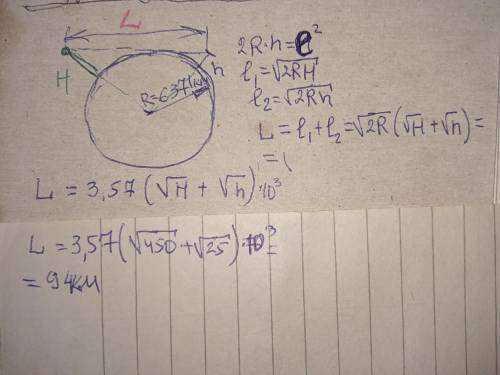 L
H
h
R=6371км
2R·h=ℓ²
ℓ₁=√2RH
ℓ₂=√2Rh
L = ℓ₁+ℓ₂=√2R(√H+√h)=
= (
L = 3,57(√H + √h)·10³
L = 3,57(√450+√25)·10³=
= 94км